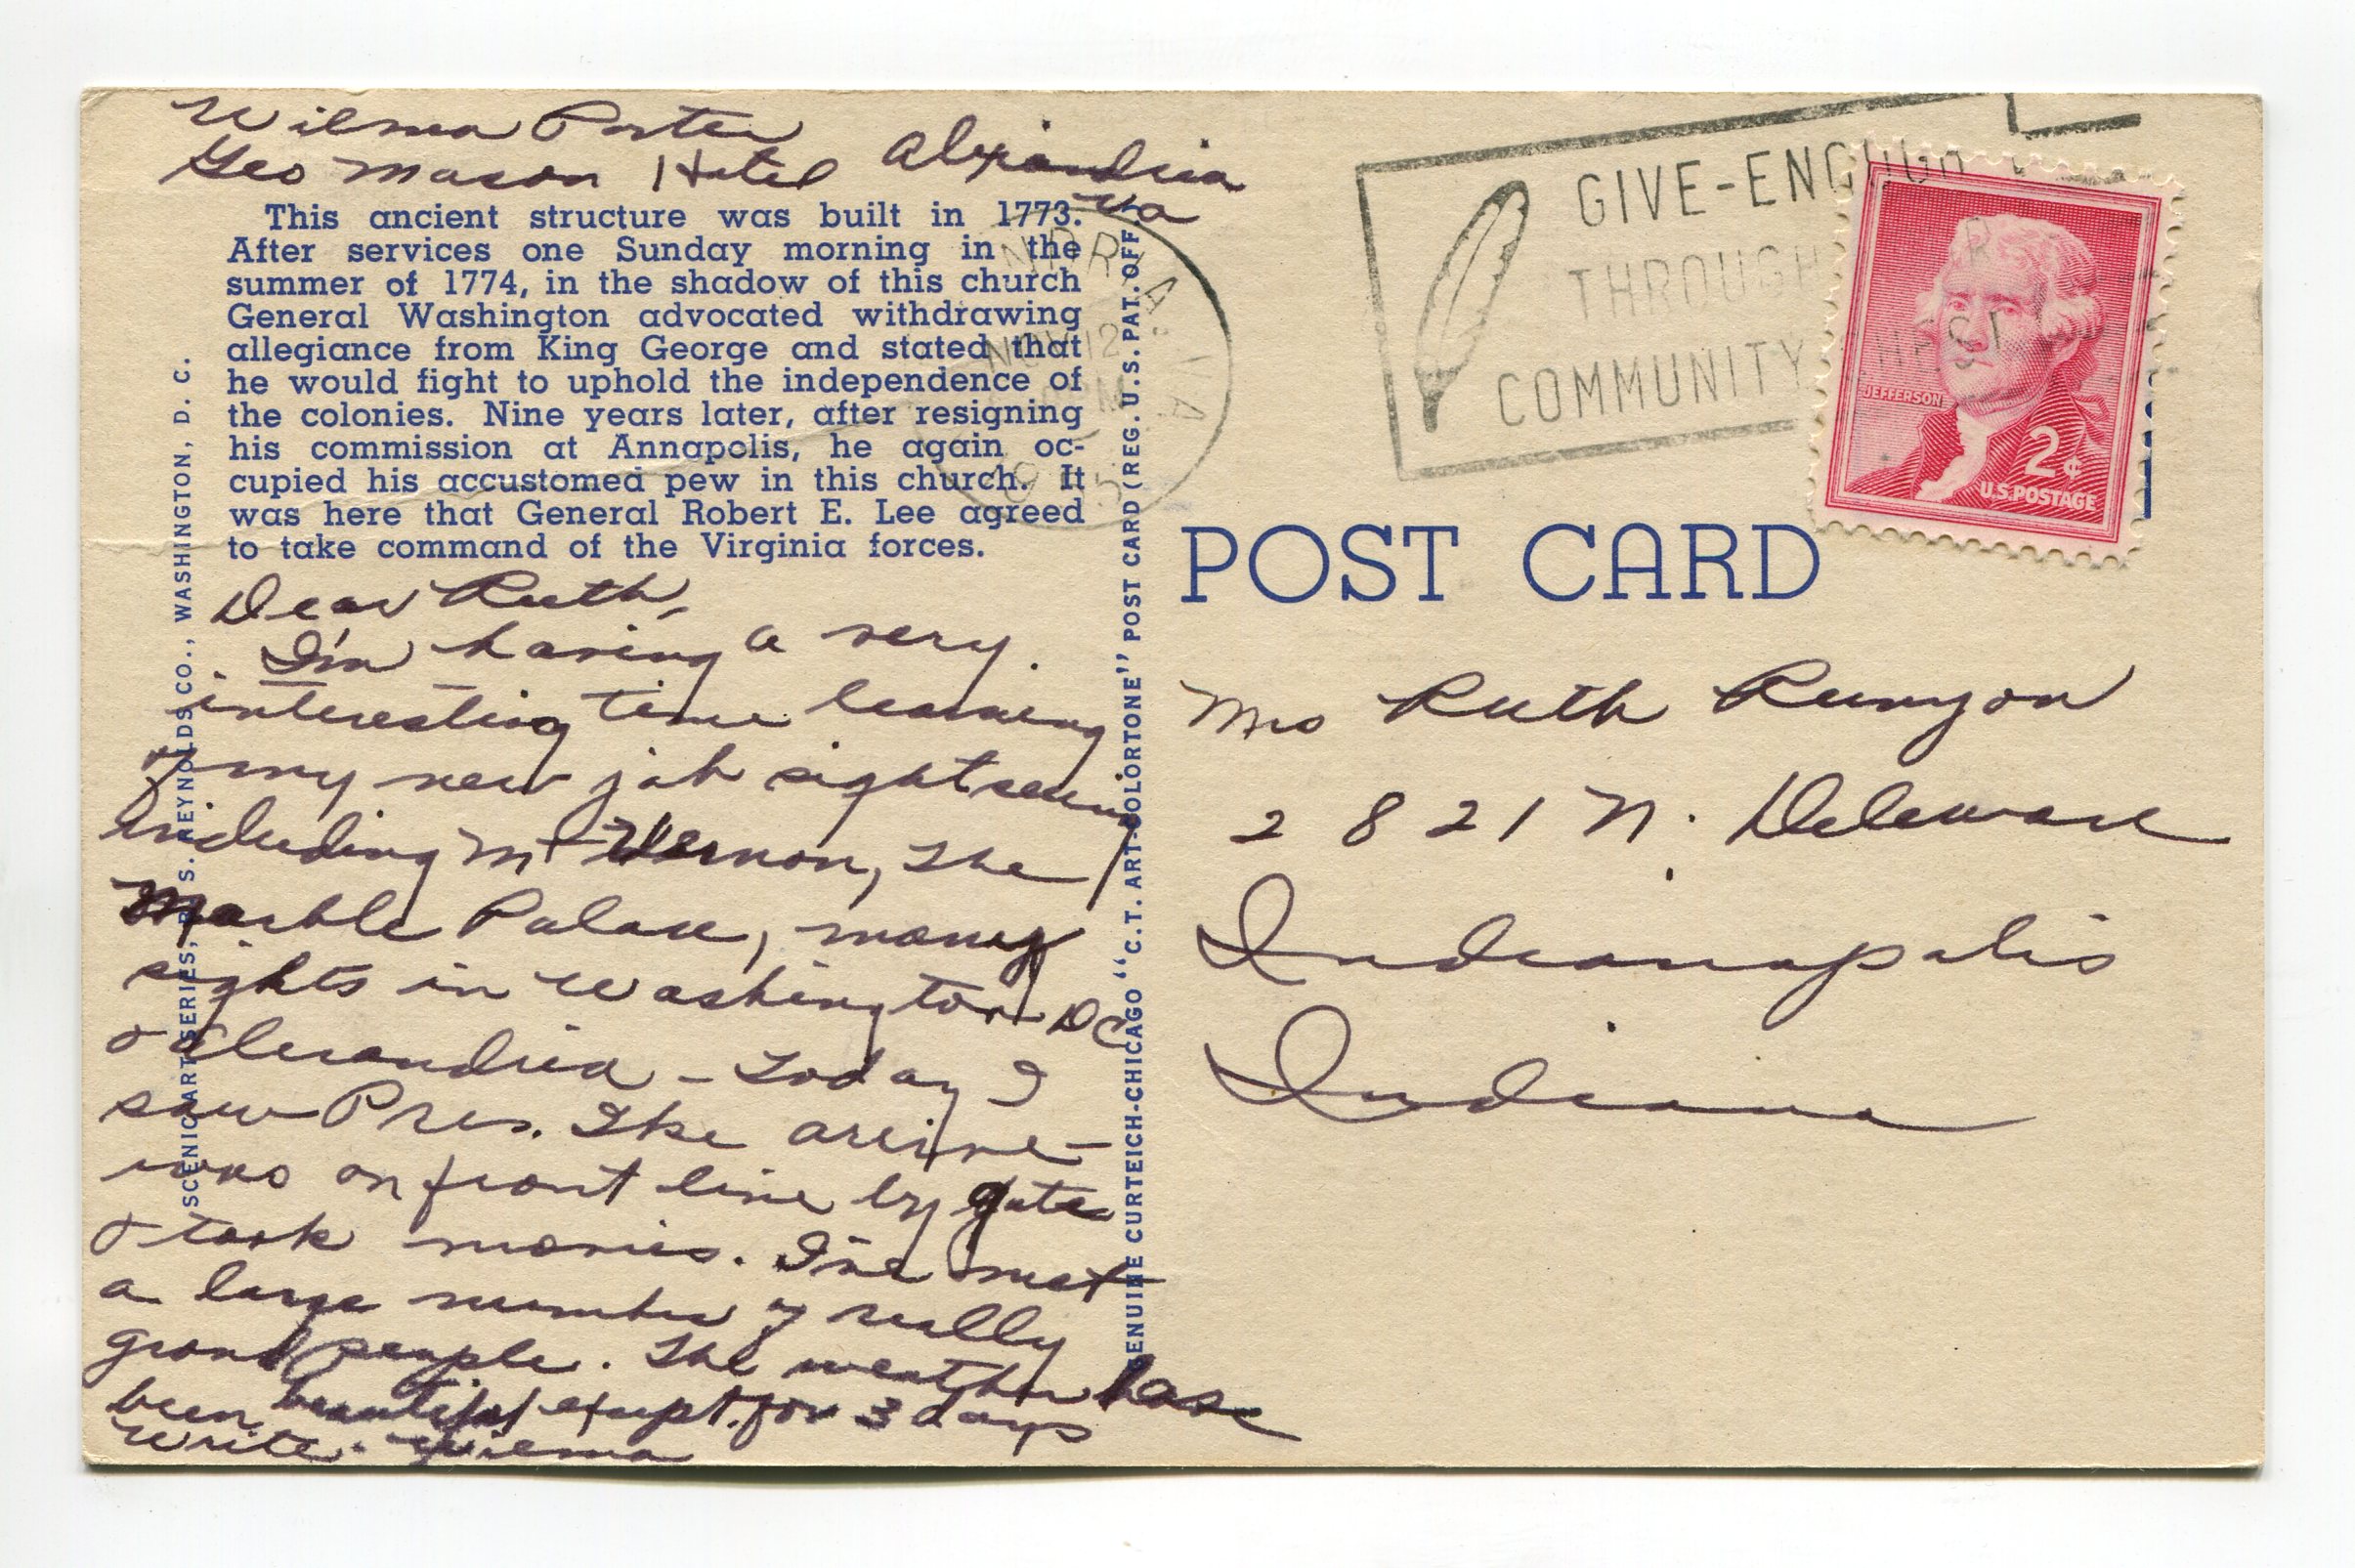 Wilma Porter
Geo Mason Hotel Alexandria
Va
This ancient structure was built in 1773.
After services one Sunday morning in the
summer of 1774, in the shadow of this church
General Washington advocated withdrawing
allegiance from King George and stated that
he would fight to uphold the independence of
the colonies. Nine years later, after resigning
his commission at Annapolis, he again oc-
cupied his accustomed pew in this church. It
was here that General Robert E. Lee agreed
to take command of the Virginia forces.
Dear Ruth,
I'm having a very
interesting time learning
of my new job sightseeing
including Mt Vernon, The
Marble Palace, many
sights in Washington DC
& Alexandria - Today I
saw Pres. Ike arrive -
was on front line by gate
& took movies. I've met
a large number of really
grand people. The weather has
been beautiful except for 3 days
Write - Wilma
SCENIC ART SERIES, B. S. REYNOLDS CO., WASHINGTON, D. C.
GENUINE CURTEICH-CHICAGO "C.T. ART-COLORTONE" POST CARD (REG. U.S. PAT. OFF
NOV 12
VA
GIVE-ENOUGH
THROUGH
COMMUNITY CHEST
JEFFERSON
2¢
U.S. POSTAGE
POST CARD
Mrs Ruth Runyon
2821 N. Deleware
Indianapolis
Indiana